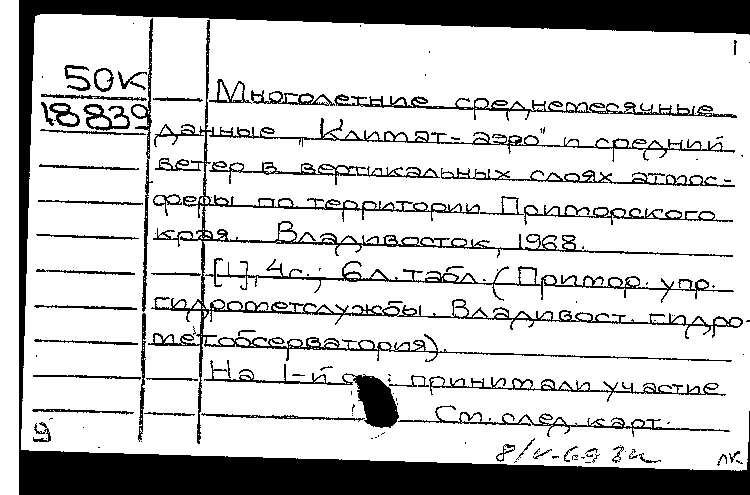 1
50К
18839
Многолетние среднемесячные
данные „Климат-аэро" и средний
ветер в вертикальных слоях атмос-
феры по территории Приморского
края. Владивосток, 1968.
[1], 4с.; 6 л. табл. (Примор. упр.
гидрометслужбы. Владивост. гидро-
метобсерватория).
На 1-й с : принимали участие
См. след. карт.
9
8/V-69
лк